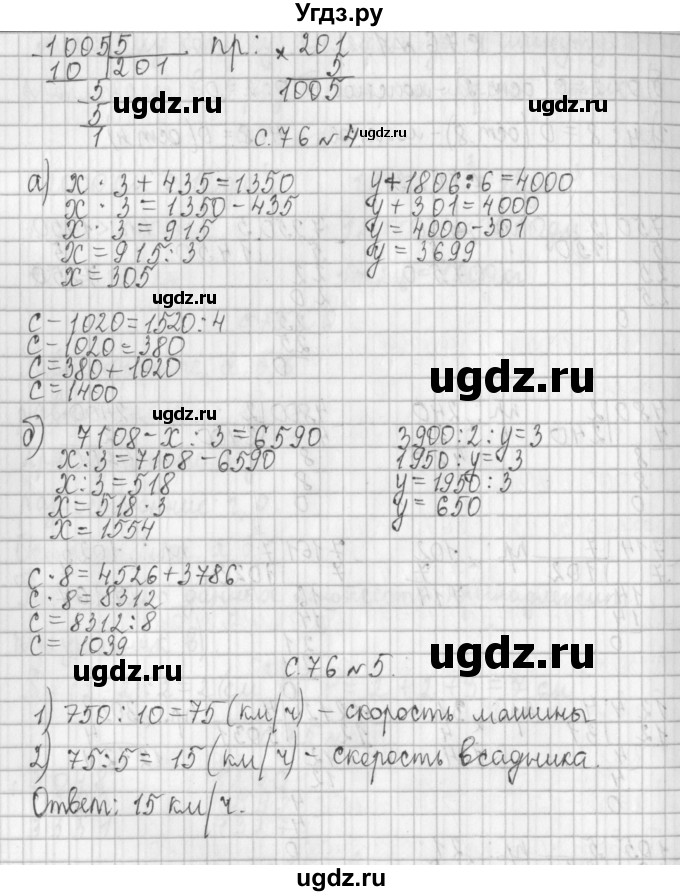 Угдз.ру
1005 | 5 пр: × 201
10 201 5
5 1005
5
1
ugdz.ru ugdz.ru ugdz.ru
с. 76 № 4.
а) x · 3 + 435 = 1350 y + 1806 : 6 = 4000
x · 3 = 1350 - 435 y + 301 = 4000
x · 3 = 915 y = 4000 - 301
x = 915 : 3 y = 3699
x = 305
ugdz.ru
c - 1020 = 1520 : 4
c - 1020 = 380
c = 380 + 1020 ugdz.ru
c = 1400
ugdz.ru
б) 7108 - x : 3 = 6590 3900 : 2 : y = 3
x : 3 = 7108 - 6590 1950 : y = 3
x : 3 = 518 y = 1950 : 3
x = 518 · 3 y = 650
x = 1554
c · 8 = 4526 + 3786
c · 8 = 8312
c = 8312 : 8
c = 1039
ugdz.ru ugdz.ru
с. 76 № 5.
1) 750 : 10 = 75 (км/ч) - скорость машины
2) 75 : 5 = 15 (км/ч) - скорость всадника.
ugdz.ru
Ответ: 15 км/ч.
ugdz.ru